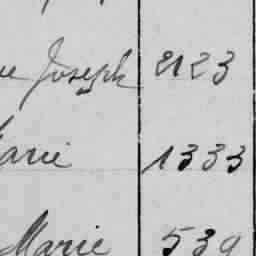 Joseph 2123
Marie 1333
Marie 539